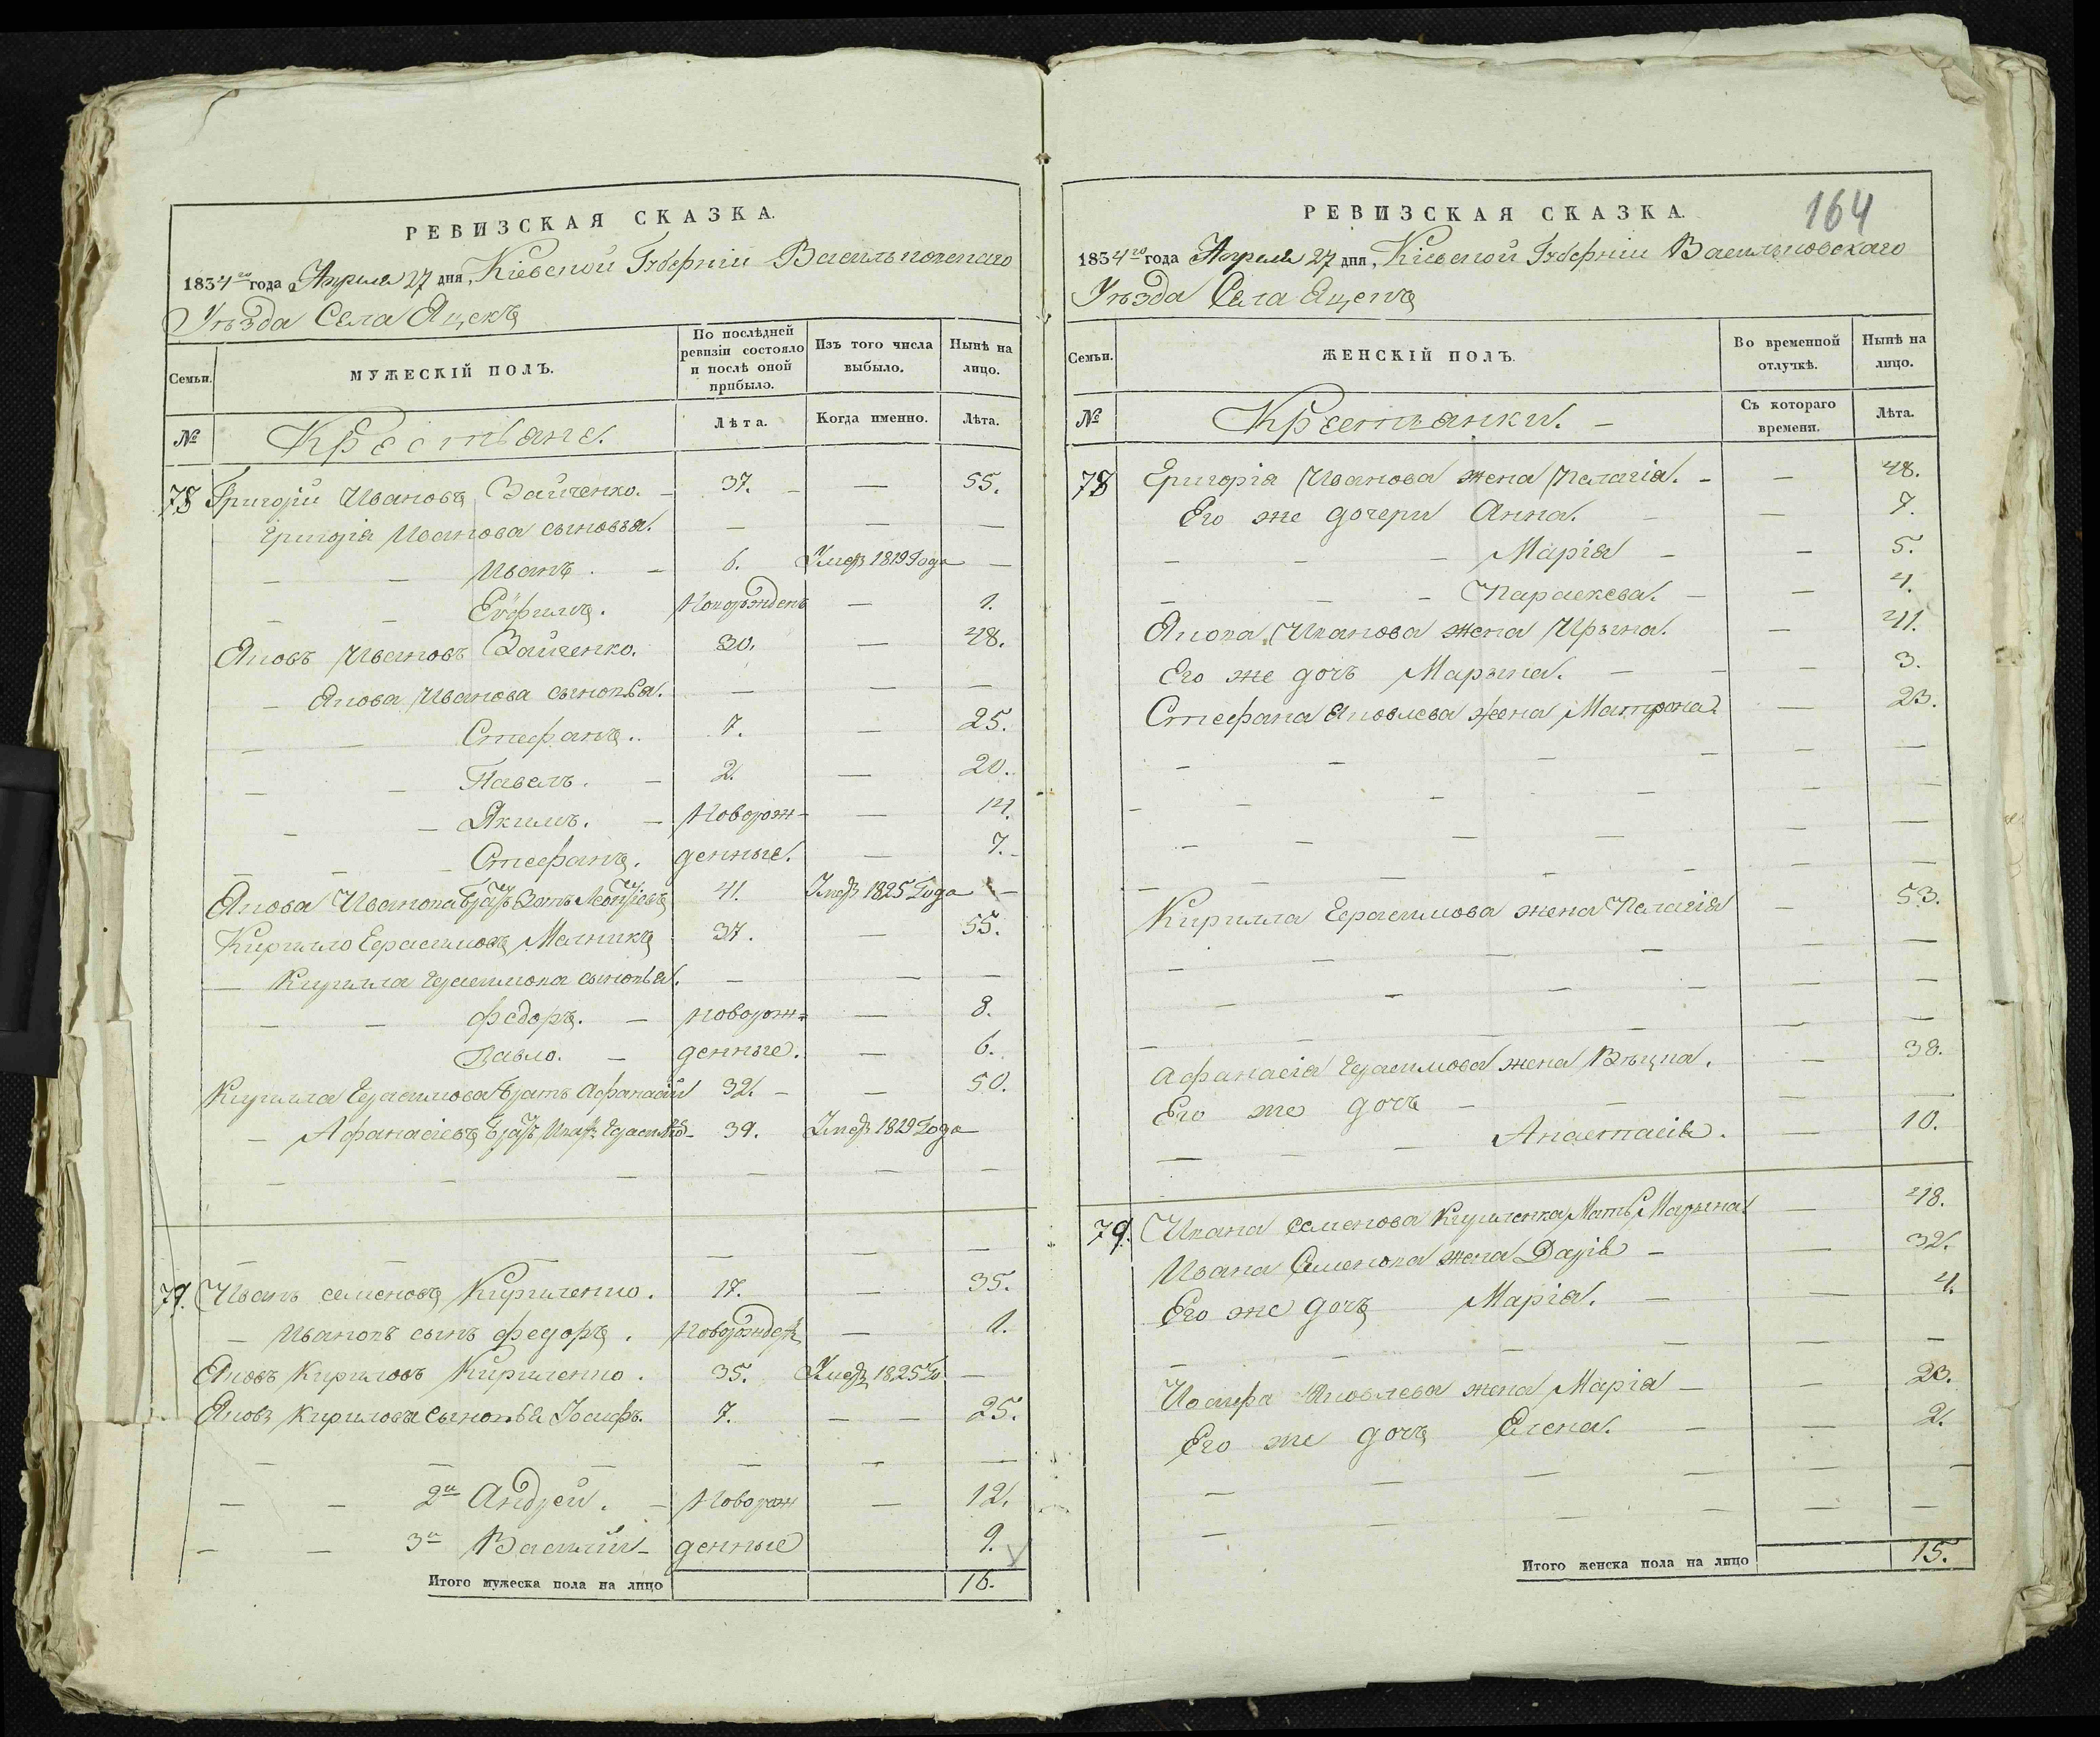 РЕВИЗСКАЯ СКАЗКА.
1834го года Апреля 27 дня, Кіевской Губерніи Васильковскаго
Уѣзда Села Яцекъ
Семьи.
МУЖЕСКІЙ ПОЛЪ.
По послѣдней ревизіи состояло и послѣ оной прибыло.
Изъ того числа выбыло.
Нынѣ на лицо.
№ Крестьяне. Лѣта. Когда именно. Лѣта.
78 Григорій Ивановъ Зайченко. — 37. — — 55.
Григорія Иванова сыновья. — — —
— — Иванъ. — 6. Умеръ 1819 Года —
— — Евфимъ. Новорожденъ — 1.
Яковъ Ивановъ Зайченко. 30. — 48.
— Якова Иванова сыновья. — — —
— — Стефанъ. 7. — 25.
— — Павелъ. — 2. — 20.
— — Якимъ. — Новорож- — 14.
— — Стефанъ. денные. — 7.
Якова Иванова братъ 41. Умеръ 1825 Года —
Кирило Герасимовъ Мелникъ 37. — 55.
— Кирилла Герасимова сыновья. — — —
— — Федоръ. — Новорож= — 8.
Павло. — денные. — 6.
Кирилла Герасимова братъ Афанасій 32. — — 50.
— Афанасіевъ братъ 39. Умеръ 1819 Года
— — — — — —
— — — — — —
79. Иванъ Семеновъ Кириленко. 17. — 35.
— Ивановъ сынъ Федоръ. Новорожденъ — 1.
Яковъ Кириловъ Кириленко. 35. Умеръ 1825 Го. —
Яковъ Кирилова сыновья Іосифъ. 7. — — 25.
— — — — — —
— — 2й Андрей. — Новорож — 12.
— — 3й Василій — денные 9.
Итого мужеска пола на лицо 16.
164
РЕВИЗСКАЯ СКАЗКА.
1834го года Апреля 27 дня, Кіевской Губерніи Васильковскаго
Уѣзда Села Яцекъ
Семьи.
ЖЕНСКІЙ ПОЛЪ.
Во временной отлучкѣ.
Нынѣ на лицо.
№ Крестьянки. — Съ котораго времени. Лѣта.
78 Григорія Иванова жена Пелагія. — — 48.
Его же дочери Анна. — — 7.
— — — Марія — — 5.
— — — Параскева. — — 4.
Якова Иванова жена Ирына. — 41.
Его же дочь Марына. — — — 3.
Стефана Яковлева жена Матрона. — 23.
— — — — — —
— — — — — —
— — — — — —
— — — — — —
Кирилла Герасимова жена Пелагія — 53.
— — — — — —
— — — — — —
— — — — — —
Афанасія Герасимова жена — 38.
Его же дочь — — — —
— — — Анастасія. — 10.
79. Ивана Семенова Кириленка Мать Марына — 48.
Ивана Семенова жена Дарія — — 32.
Его же дочь Марія. — — 4.
— — — — — —
Іосифа Яковлева жена Марія — — 23.
Его же дочь Елена. — — 2.
— — — — — —
— — — — — —
Итого женска пола на лицо 15.